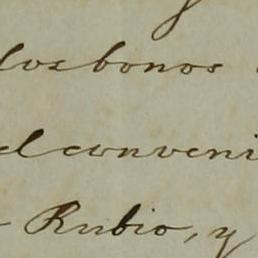 los bonos
el conveni
Rubio, y